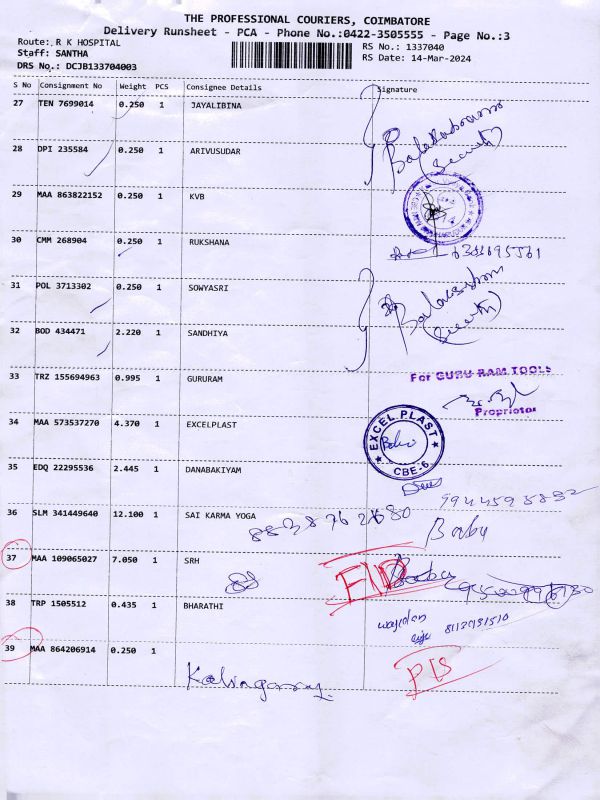 THE PROFESSIONAL COURIERS, COIMBATORE
Delivery Runsheet - PCA - Phone No.:0422-3505555 - Page No.:3
Route: R K HOSPITAL
RS No.: 1337040
Staff: SANTHA
RS Date: 14-Mar-2024
DRS No.: DCJB133704003
S No Consignment No Weight PCS Consignee Details Signature
27 TEN 7699014 0.250 1 JAYALIBINA
28 DPI 235584 0.250 1 ARIVUSUDAR
(Security)
29 MAA 863822152 0.250 1 KVB
30 CMM 268904 0.250 1 RUKSHANA
31 POL 3713302 0.250 1 SOWYASRI
32 BOD 434471 2.220 1 SANDHIYA
(Security)
33 TRZ 155694963 0.995 1 GURURAM
For GURU RAM TOOLS
Proprietor
34 MAA 573537270 4.370 1 EXCELPLAST
EXCEL PLAST
CBE-6
35 EDQ 22295536 2.445 1 DANABAKIYAM
36 SLM 341449640 12.100 1 SAI KARMA YOGA
Babu
37 MAA 109065027 7.050 1 SRH
Babu
38 TRP 1505512 0.435 1 BHARATHI
39 MAA 864206914 0.250 1